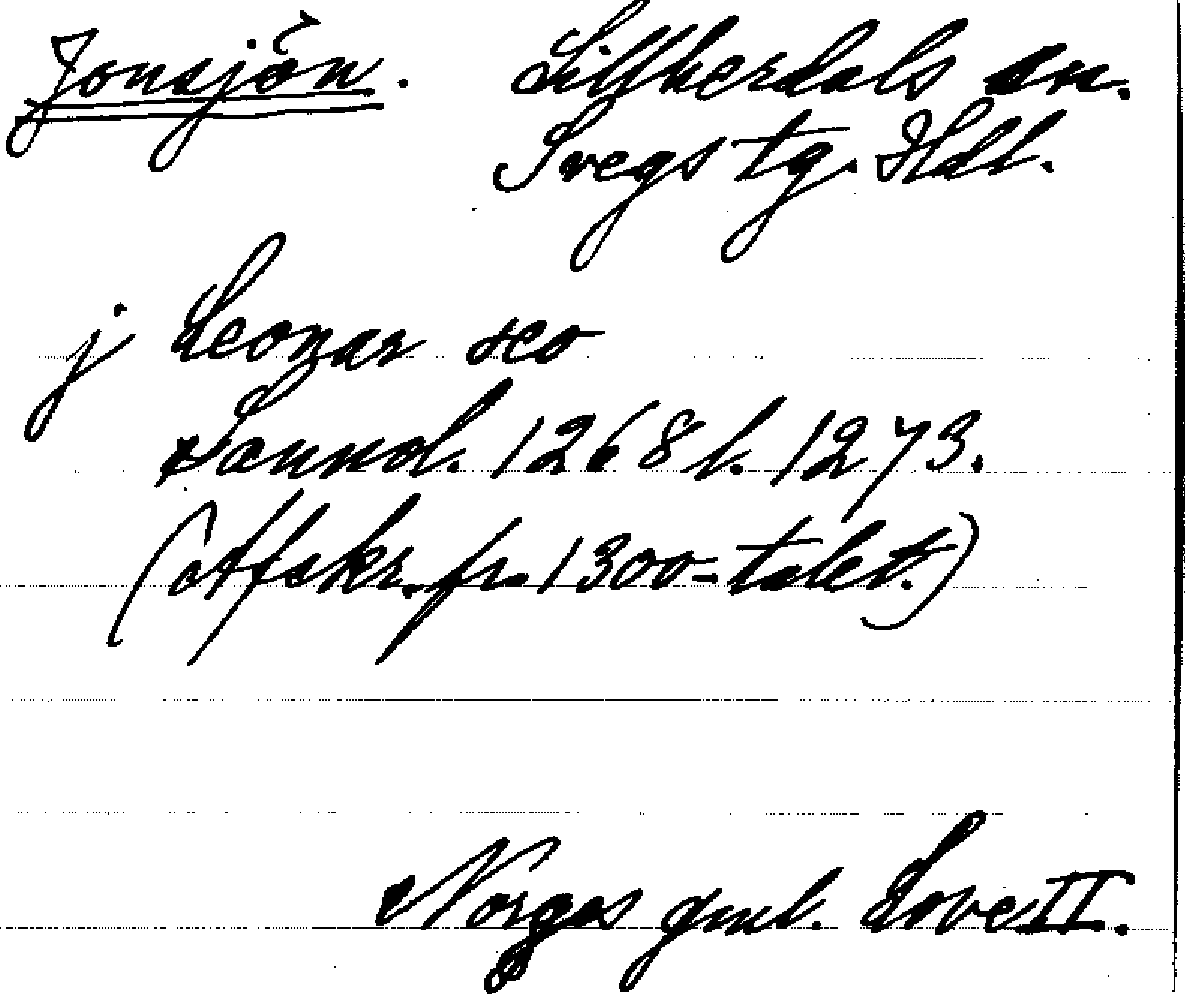 Jonsjön. Lillherdals sn.
Svegs tg. Hdl.
j Leonar sco
Sannol. 1268 l. 1273.
(Afskr. fr. 1300-talet.)
Norges gml. Love II.